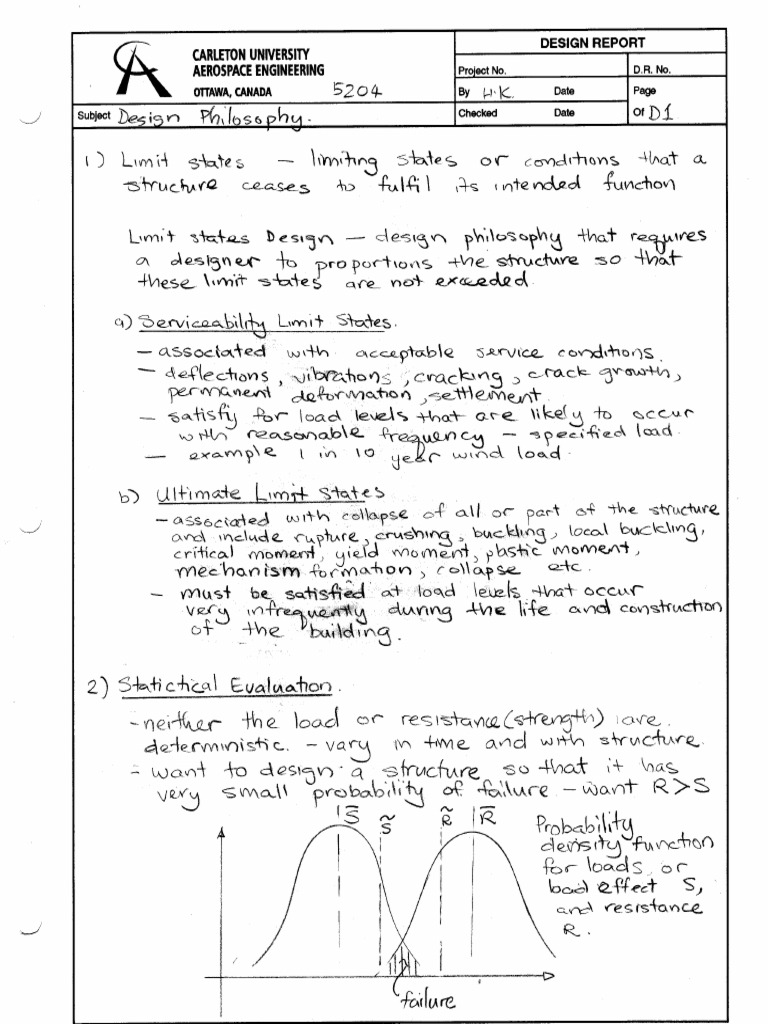 CARLETON UNIVERSITY
AEROSPACE ENGINEERING
OTTAWA, CANADA 5204
DESIGN REPORT
Project No. D.R. No.
By H.K. Date Page
Subject Design Philosophy. Checked Date Of D1
1) Limit states — limiting states or conditions that a
structure ceases to fulfil its intended function
Limit states Design — design philosophy that requires
a designer to proportions the structure so that
these limit states are not exceeded.
a) Serviceability Limit States.
— associated with acceptable service conditions.
— deflections, vibrations, cracking, crack growth,
permanent deformation, settlement.
— satisfy for load levels that are likely to occur
with reasonable frequency — specified load.
— example 1 in 10 year wind load.
b) Ultimate Limit States
— associated with collapse of all or part of the structure
and include rupture, crushing, buckling, local buckling,
critical moment, yield moment, plastic moment,
mechanism formation, collapse etc.
— must be satisfied at load levels that occur
very infrequently during the life and construction
of the building.
2) Statictical Evaluation.
- neither the load or resistance (strength) are
deterministic. - vary in time and with structure.
- want to design a structure so that it has
very small probability of failure - want R>S
S̅ S̃ R̃ R̅
Probability
density function
for loads or
load effect S,
and resistance
R.
failure